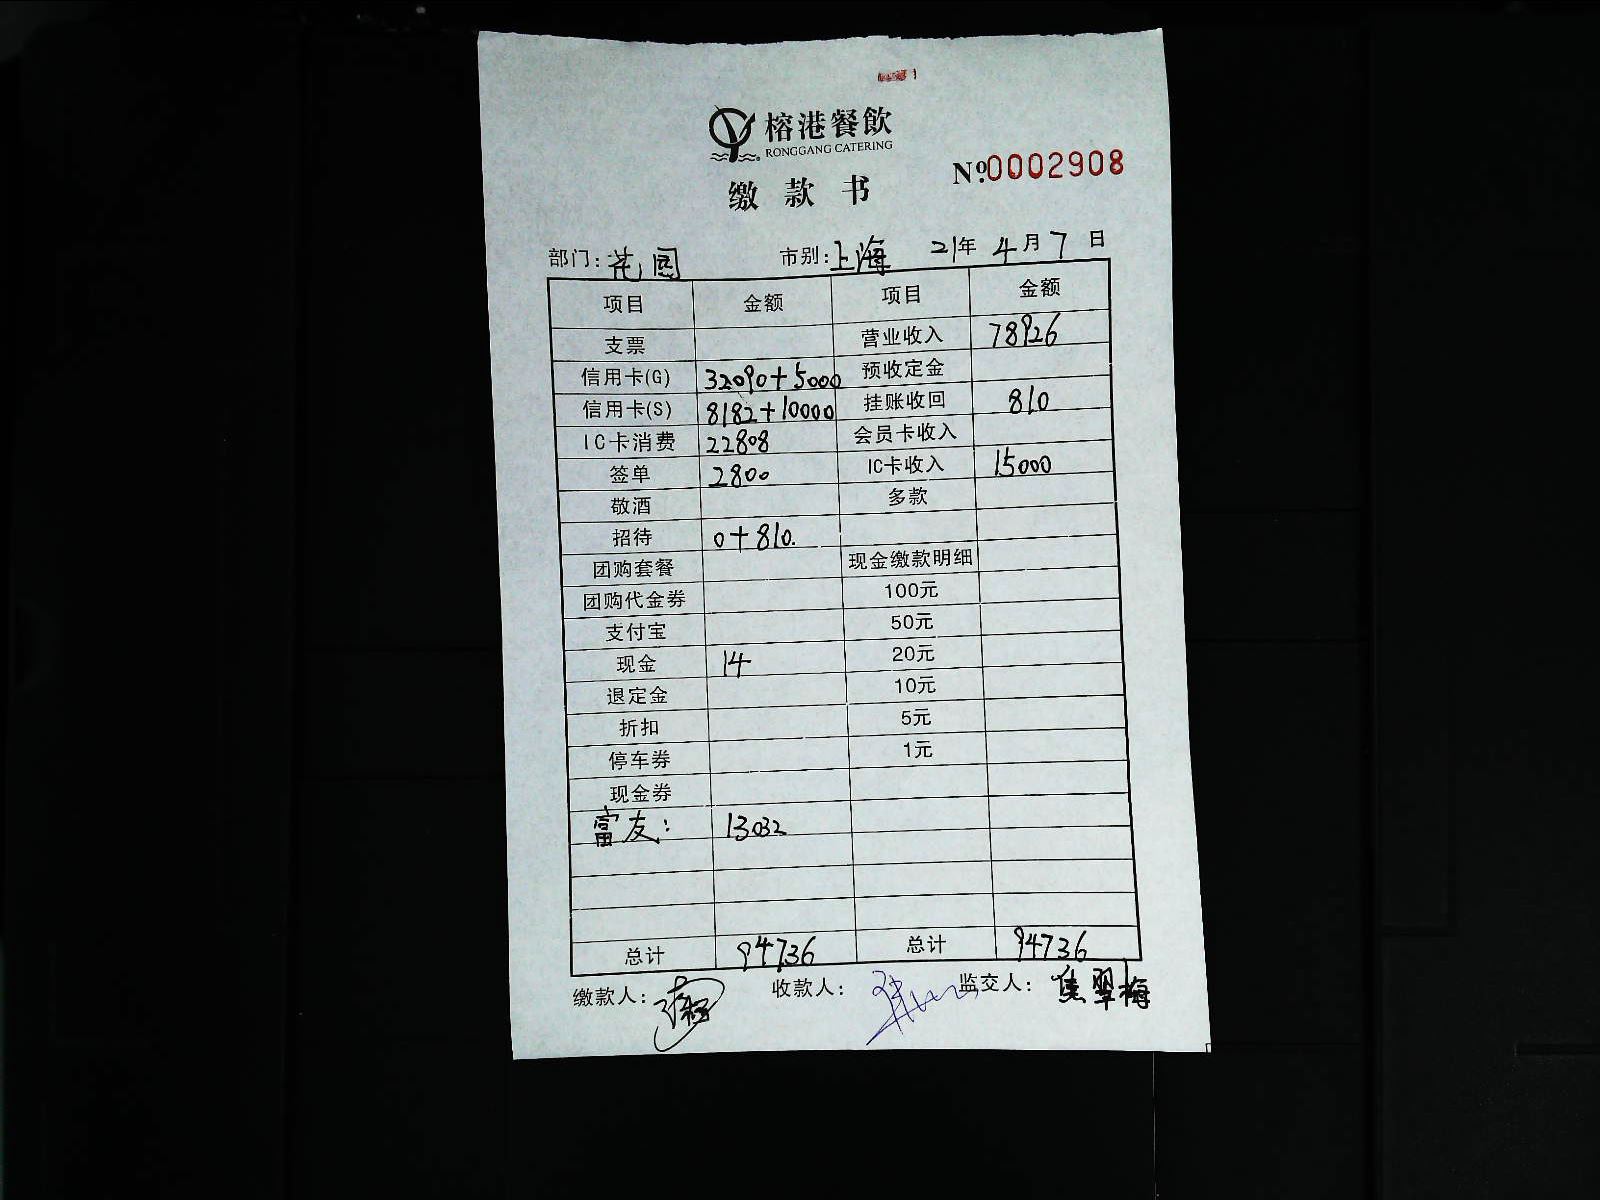 榕港餐飲
RONGGANG CATERING
缴款书 №0002908
部门:花园 市别:上海 21年4月7日
项目 金额 项目 金额
支票 营业收入 78926
信用卡(G) 32090+5000 预收定金
信用卡(S) 8182+10000 挂账收回 810
IC卡消费 22808 会员卡收入
签单 2800 IC卡收入 15000
敬酒 多款
招待 0+810.
团购套餐 现金缴款明细
团购代金券 100元
支付宝 50元
现金 14 20元
退定金 10元
折扣 5元
停车券 1元
现金券
富友: 13032
总计 94736 总计 94736
缴款人: 收款人: 监交人:侯翠梅